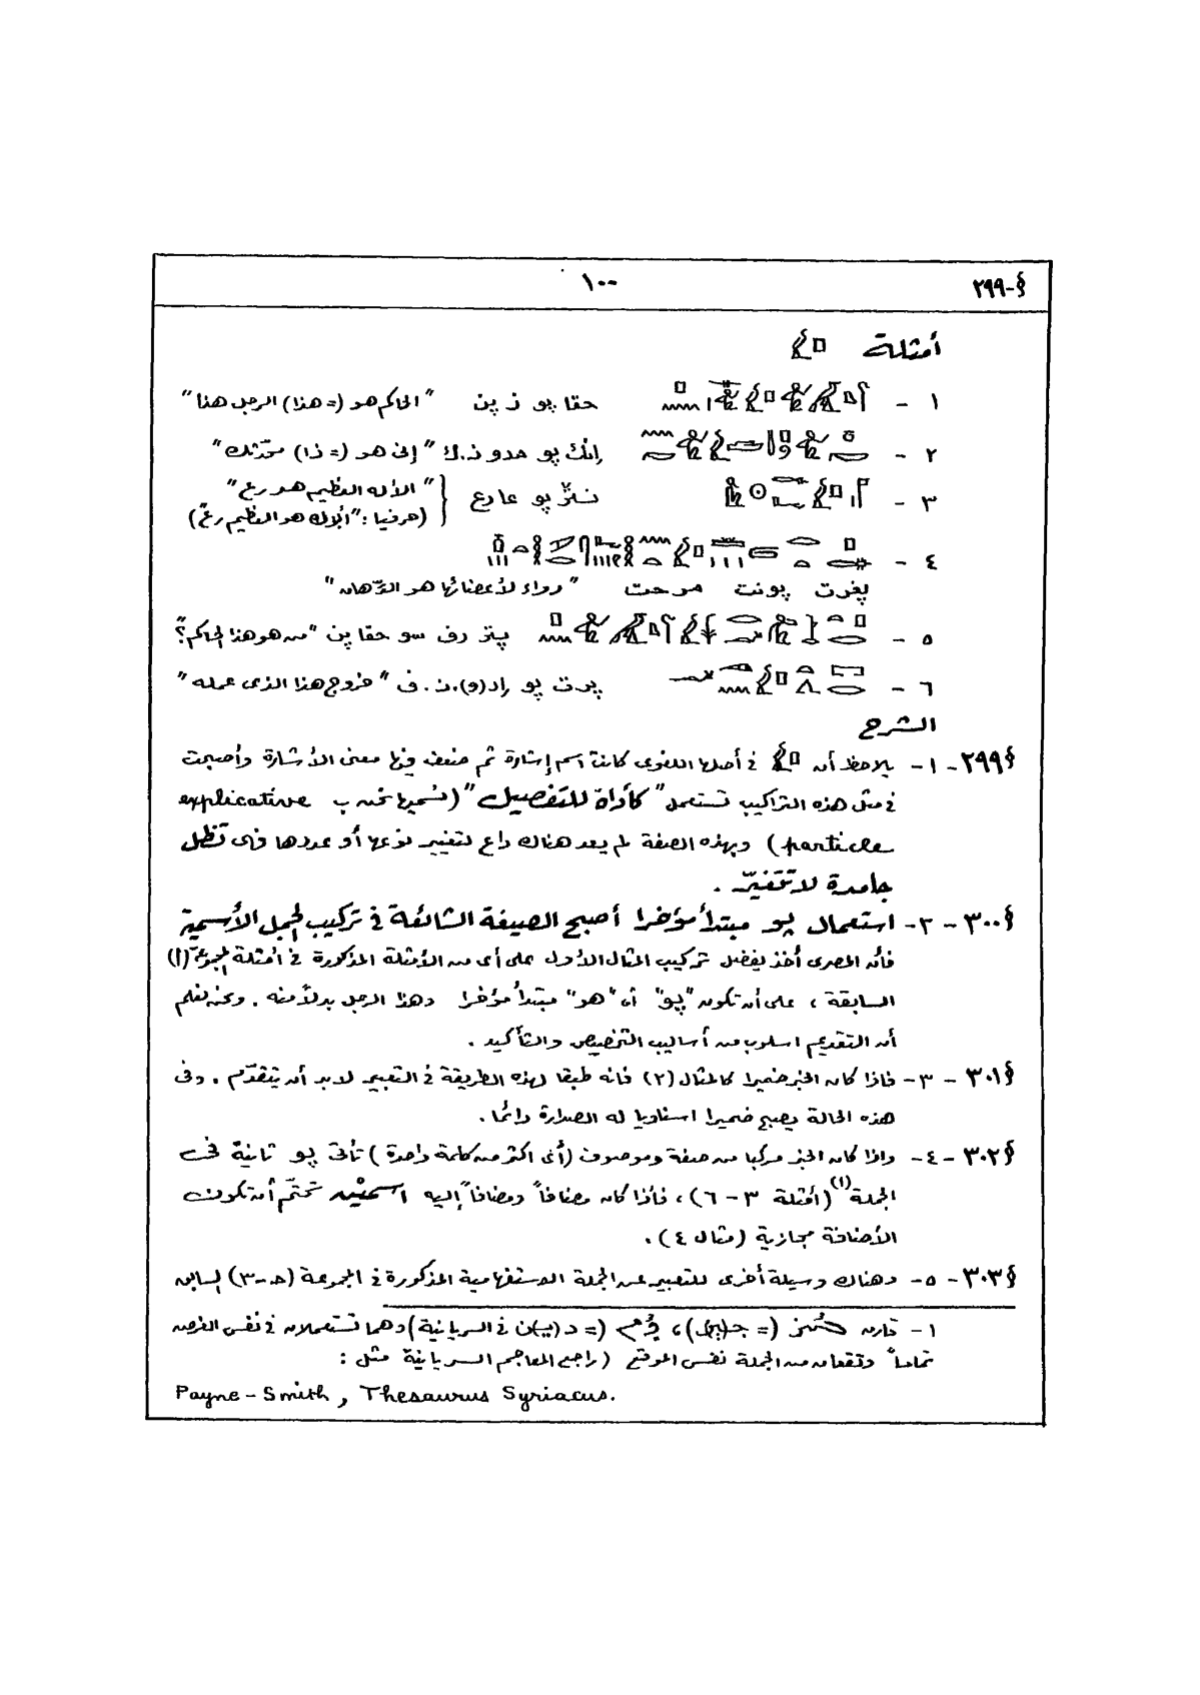 §-٢٩٩ ١٠٠
أمثلة
١ - حقا پو ز پن "الحاكم هو (= هذا) الرجل هذا"
٢ - إنك پو مدو ن.ك "إنى هو (= ذا) محدّثك"
٣ - نتر پو عا رع "الأله العظيم هو رع"
(حرفيا: "الأله هو العظيم رع")
٤ -
پغرت پونت مرحت "دواء لأعضائها هو الدّهان"
٥ - پتر رف سو حقا پن "من هو هذا الحاكم؟"
٦ - پرت پو إر(و).ن.ف "خروج هذا الذى عمله"
الشرح
§٢٩٩ - ١ - يلاحظ أن فى أصلها اللغوى كانت اسم إشارة ثم ضعف فيها معنى الأشارة وأصبحت
فى مثل هذه التراكيب تستعمل "كأداة للتفصيل" (نسميها نحن ب explicative
particle) وبهذه الصفة لم يعد هناك داع لتغيير نوعها أو عددها فهى تظل
جامدة لا تتغيّر .
§٣٠٠ - ٢ - استعمال پو مبتدأ مؤخرا أصبح الصيغة الشائعة فى تركيب الجمل الأسمية
فأن المصرى أخذ يفضل تركيب المثال الأول على أى من الأمثلة المذكورة فى أمثلة المجموعة (أ)
السابقة ، على أن تكون "پو" أى "هو" مبتدأ مؤخرا وهذا الرجل بدلاً منه . ونحن نعلم
أن التقديم اسلوب من أساليب التخصيص والتأكيد .
§٣٠١ - ٣ - فاذا كان الخبر ضميرا كالمثال (٢) فانه طبقا لهذه الطريقة فى التعبير لابد أن يتقدّم . وفى
هذه الحالة يصبح ضميرا اسناديا له الصدارة دائما .
§٣٠٢ - ٤ - واذا كان الخبر مركبا من صفة وموصوف (أى اكثر من كلمة واحدة) تأتى پو ثانية فى
الجملة (١) (أمثلة ٣ - ٦) ، فأذا كان مضافاً ومضافاً إليه اسمين تحتّم أن تكون
الأضافة مجازية (مثال ٤) .
§٣٠٣ - ٥ - وهناك وسيلة أخرى للتعبير عن الجملة الاستفهامية المذكورة فى المجموعة (حـ - ٣) السابق
١ - قارن وهما تستعملان فى نفس الغرض
تماماً وتقعان من الجملة نفس الموقع (راجع المعاجم السريانية مثل :
Payne-Smith, Thesaurus Syriacus.